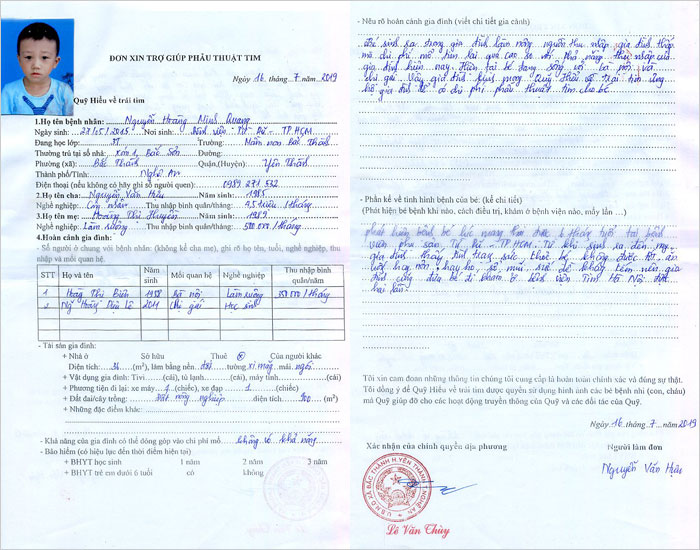 ĐƠN XIN TRỢ GIÚP PHẪU THUẬT TIM
Ngày 16 tháng 7 năm 2019
Quỹ Hiểu về trái tim
1.Họ tên bệnh nhân: Nguyễn Hoàng Minh Quang
Ngày sinh: 27/5/2015 Nơi sinh: Bệnh viện Từ Dũ - TP HCM
Đang học lớp: Trường: Mầm non Bắc Thành
Thường trú tại số nhà: Xóm 1, Bắc Sơn Đường:
Phường (xã): Bắc Thành Quận,(Huyện): Yên Thành
Thành phố/Tỉnh: Nghệ An
Điện thoại (nếu không có hãy ghi số người quen): 0989 271 532
2.Họ tên cha: Nguyễn Văn Hiếu Năm sinh: 1985
Nghề nghiệp: Công nhân Thu nhập bình quân/tháng: 4,5 triệu /tháng
3.Họ tên mẹ: Hoàng Thị Huyền Năm sinh: 1989
Nghề nghiệp: Làm ruộng Thu nhập bình quân/tháng: 500.000 /tháng
4.Hoàn cảnh gia đình:
- Số người ở chung với bệnh nhân: (không kể cha mẹ), ghi rõ họ tên, tuổi, nghề nghiệp, thu
nhập và mối quan hệ.
STT Họ và tên Năm sinh Mối quan hệ Nghề nghiệp Thu nhập bình quân/năm
1 Hoàng Thị Biên 1958 Bà nội Làm ruộng 350.000/tháng
2 Ng Hoàng 2011 Chị gái Học sinh
- Tài sản gia đình:
+ Nhà ở Sở hữu Thuê Của người khác
Diện tích: 36 (m²), làm bằng nền: đất tường: xi măng mái: ngói
+ Vật dụng gia đình: Tivi (cái), tủ lạnh (cái), máy tính (cái)
+ Phương tiện đi lại: xe máy 1 (chiếc), xe đạp 1 (chiếc)
+ Đất đai/cây trồng: Đất nông nghiệp diện tích: 900 (m²)
+ Những đặc điểm khác:
- Khả năng của gia đình có thể đóng góp vào chi phí mổ: không có khả năng
- Bảo hiểm (có hiệu lực đến thời điểm hiện tại)
+ BHYT học sinh 1 năm 2 năm 3 năm
+ BHYT trẻ em dưới 6 tuổi có không
- Nêu rõ hoàn cảnh gia đình (viết chi tiết gia cảnh)
Bé sinh ra trong gia đình làm nông, nguồn thu nhập gia đình thấp
mà chi phí mổ tim lại quá cao so với khả năng thu nhập của
gia đình hiện nay. Hiện tại bé đang sống với bà nội và
chị gái. Vậy gia đình kính mong Quỹ Hiểu về Trái tim ủng
hộ gia đình để có chi phí phẫu thuật tim cho bé.
- Phần kể về tình hình bệnh của bé: (kể chi tiết)
(Phát hiện bệnh khi nào, cách điều trị, khám ở bệnh viện nào, mấy lần …)
phát hiện bệnh bé lúc mang tim được 6 tháng tuổi tại bệnh
viện phụ sản Từ Dũ - TP.HCM. Từ khi sinh ra đến
gia đình thấy tình trạng sức khỏe bé không được tốt, ăn
hay ho, sổ mũi, gia
đình cũng đưa bé đi khám ở bệnh viện Tim Hà Nội được
hai lần.
Tôi xin cam đoan những thông tin chúng tôi cung cấp là hoàn toàn chính xác và đúng sự thật.
Tôi đồng ý để Quỹ Hiểu về trái tim được quyền sử dụng hình ảnh các bé bệnh nhi (con, cháu)
mà Quỹ giúp đỡ cho các hoạt động truyền thông của Quỹ và các đối tác của Quỹ.
Ngày 16 tháng 7 năm 2019
Xác nhận của chính quyền địa phương Người làm đơn
U.B.N.D XÃ BẮC THÀNH H.YÊN THÀNH NGHỆ AN
Lê Văn Thùy
Nguyễn Văn Hiếu